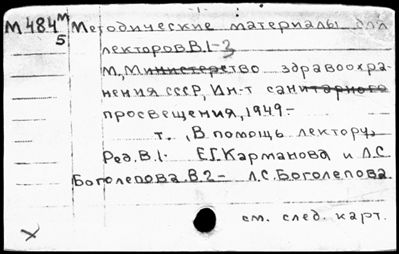 М484м/5 Методические материалы для
лекторов В.1-3
М., Министерство здравоохра-
нения СССР, Ин-т санитарного
просвещения, 1949.-
т. „В помощь лектору„
Ред. В.1. Е.Г. Карманова и Л.С.
Боголепова. В.2- Л.С. Боголепова.
см. след. карт.